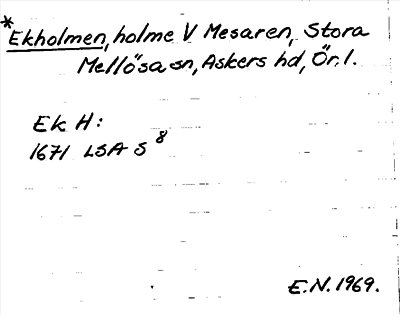 *Ekholmen, holme V Mesaren, Stora
Mellösa sn, Askers hd, Ör. l.
Ek H:
1671 LSA S 8
E.N. 1969.